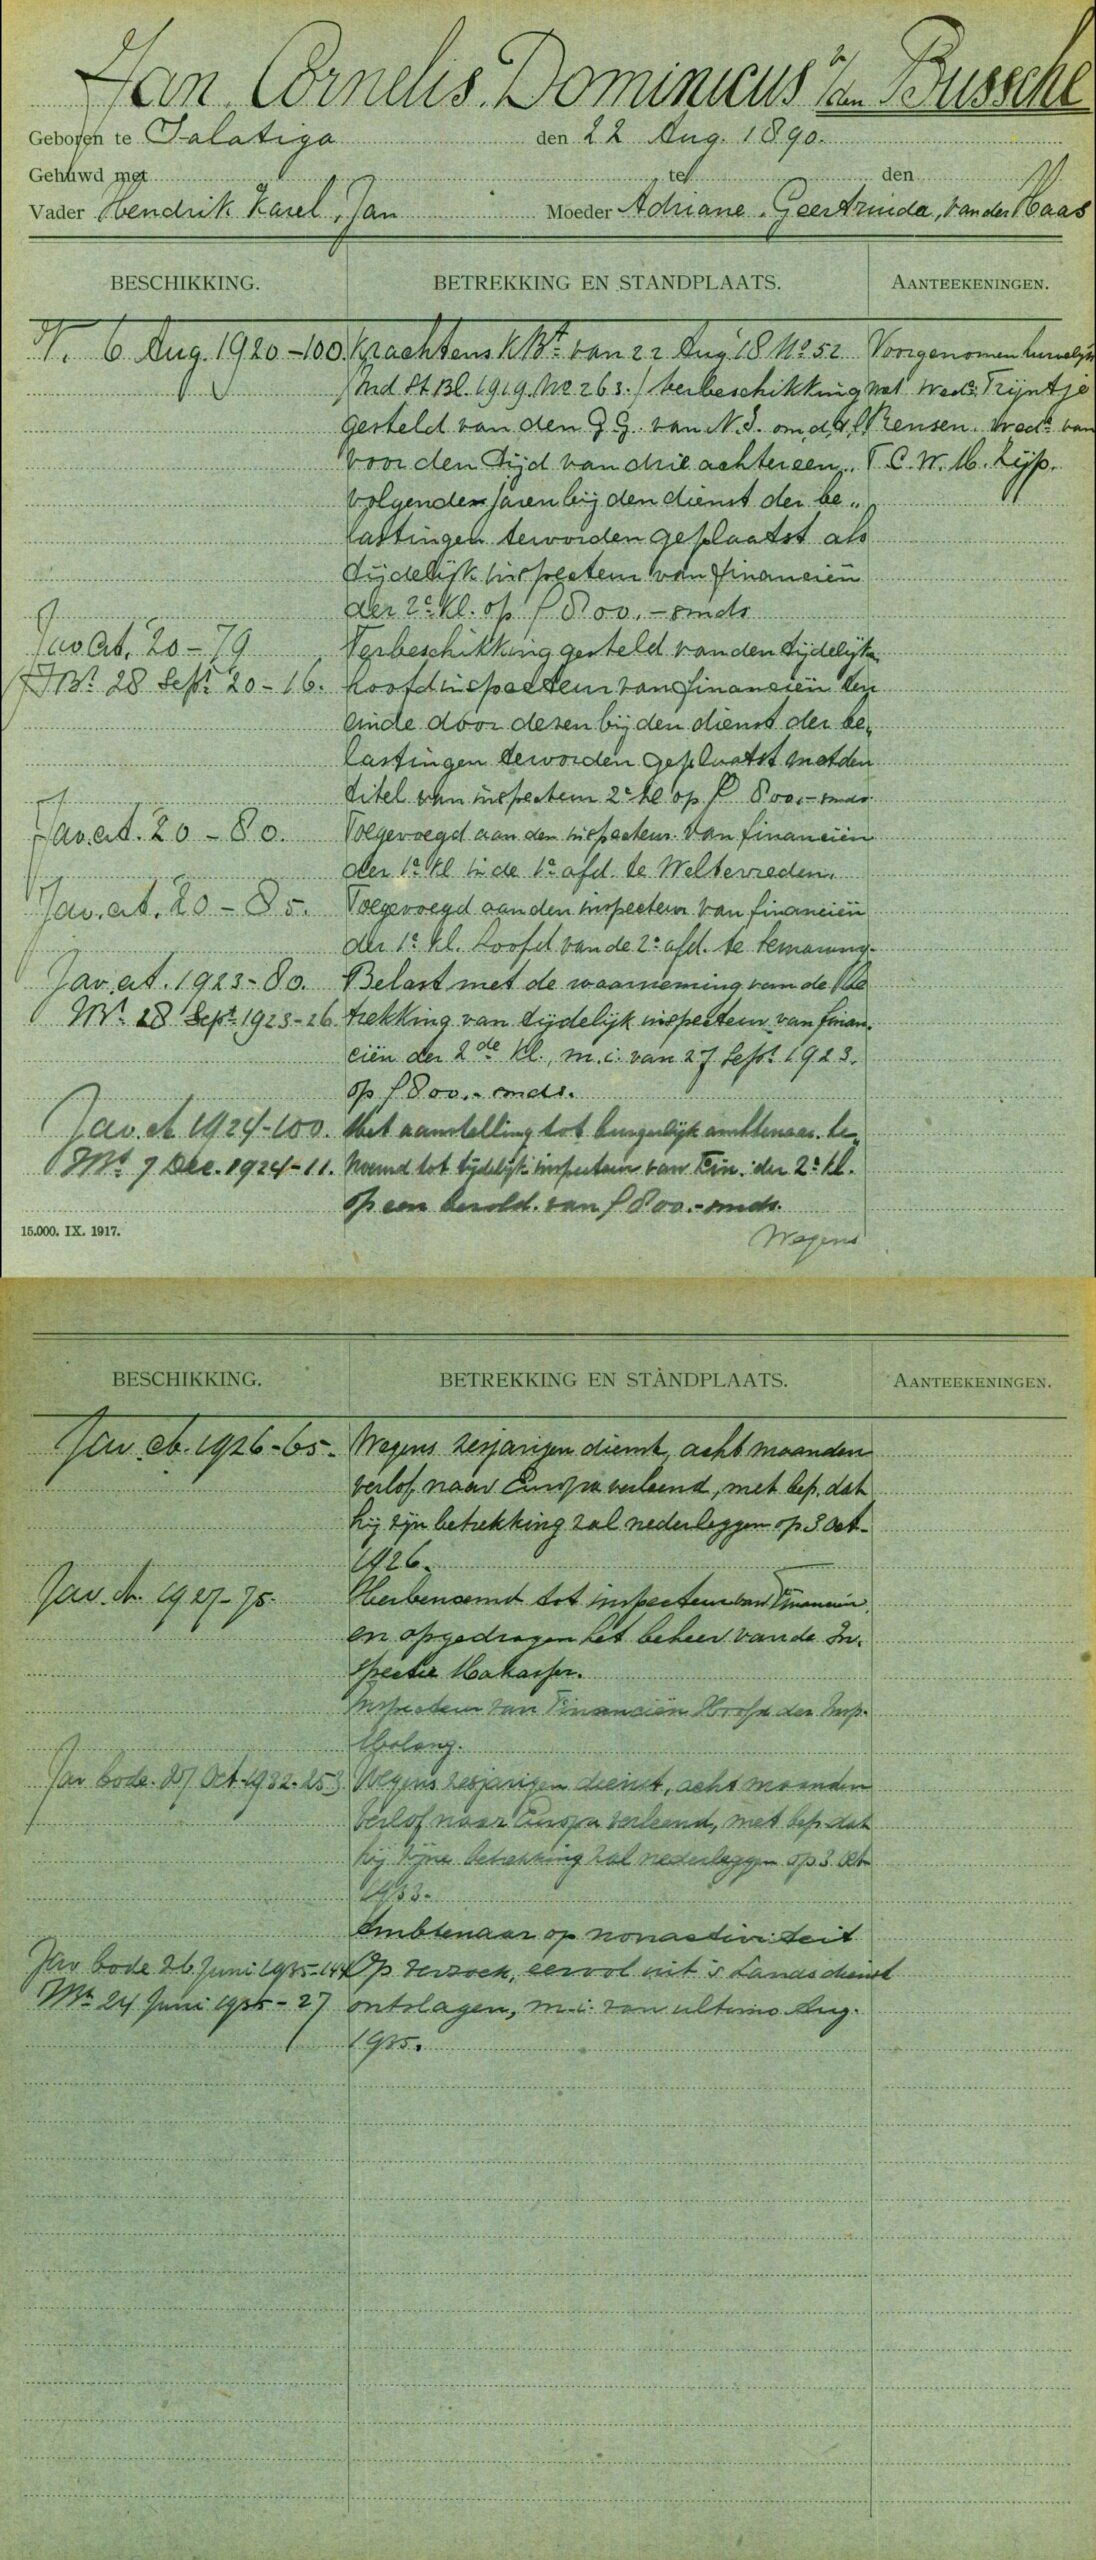 Jan Cornelis Dominicus v/den Bussche
Geboren te Salatiga den 22 Aug. 1890.
Gehuwd met te den
Vader Hendrik Karel, Jan Moeder Adriane Geertruida, van der Maas
BESCHIKKING. BETREKKING EN STANDPLAATS. AANTEEKENINGEN.
N. 6 Aug. 1920-100. Krachtens K Bt. van 22 Aug '18 No 52 Voorgenomen huwelijk
/Ind St. Bl. 1919. No 263./ terbeschikking met wede Trijntje
gesteld van den G.G. van N.I. om d. Rensen wede van
voor den tijd van drie achtereen„ T.C.W.M. Zijp.
volgende jaren bij den dienst der be„
lastingen teworden geplaatst als
tijdelijk inspecteur van financiën
der 2e Kl. op f 800.- smds
Jav Ct. 20-79 Terbeschikking gesteld van den tijdelijk
Bt. 28 Sept. 20-16. hoofdinspecteur van financiën ten
einde door dezen bij den dienst der be„
lastingen teworden geplaatst met den
titel van inspecteur 2e kl op f 800.- smds
Jav. ct. 20-80. Toegevoegd aan den inspecteur van financiën
der 1e Kl in de 1e afd. te Weltevreden.
Jav. ct. 20-85. Toegevoegd aan den inspecteur van financiën
der 1e Kl. hoofd van de 2e afd. te Semarang.
Jav. ct. 1923-80. Belast met de waarneming van de be
Bt. 28 Sept. 1923-26. trekking van tijdelijk inspecteur van finan.
ciën der 2de Kl., m.i. van 27 Sept. 1923.
op f 800.- smds.
Jav. ct 1924-100. Met aanstelling tot burgerlijk ambtenaar be„
Bt 7 Dec. 1924-11. noemd tot tijdelijk inspecteur van Fin. der 2e Kl.
op een bezold. van f 800.- smds.
15.000. IX. 1917. Wegens
BESCHIKKING. BETREKKING EN STANDPLAATS. AANTEEKENINGEN.
Jav ct. 1926-65- Wegens zesjarigen dienst, acht maanden
verlof naar Europa verleend, met bep. dat
hij zijn betrekking zal nederleggen op 3 Oct.
1926.
Jav. ct. 1927-75. Herbenoemd tot inspecteur van Financiën
en opgedragen het beheer van de In.
spectie Makasser.
Inspecteur van Financiën Hoofd der Insp.
Malang.
Jav bode. 27 Oct. 1932-253 Wegens zesjarigen dienst, acht maanden
verlof naar Europa verleend, met bep. dat
hij zijne betrekking zal nederleggen op 3 Oct
1933.
Ambtenaar op nonactiviteit
Jav bode 26 Juni 1935-144 Op verzoek, eervol uit 's Lands dienst
Bt. 24 Juni 1935-27 ontslagen, m.i. van ultimo Aug.
1935.